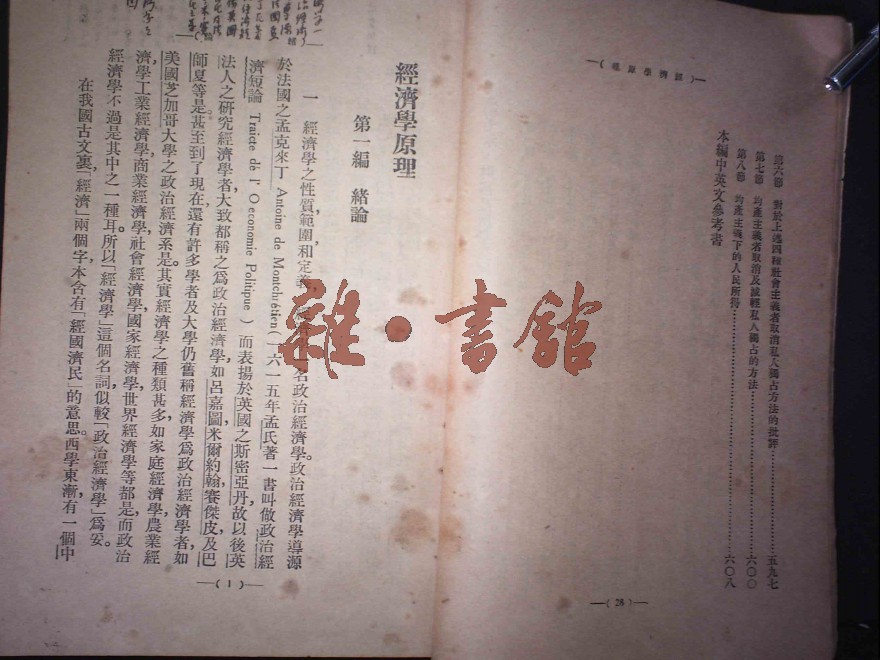 —(經濟學原理)—
第六節 對於上述四種社會主義者取消私人獨占方法的批評……五九七
第七節 均產主義者取消及減輕私人獨占的方法……六〇〇
第八節 均產主義下的人民所得……六〇八
本編中英文參考書
—( 28 )—
經濟學原理
第一編 緒論
一 經濟學之性質範圍和定義 一名政治經濟學。政治經濟學導源
於法國之孟克來丁 Antoine de Montchrétien(一六一五年孟氏著一書叫做政治經
濟短論 Traicte de l' Oeconomie Politique ) 而表揚於英國之斯密亞丹,故以後英
法人之研究經濟學者,大致都稱之爲政治經濟學,如呂嘉圖米爾約翰賽傑皮及巴
師夏等是。甚至到了現在,還有許多學者及大學仍舊稱經濟學爲政治經濟學者,如
美國芝加哥大學之政治經濟系是。其實經濟學之種類甚多,如家庭經濟學,農業經
濟學,工業經濟學,商業經濟學,社會經濟學,國家經濟學,世界經濟學等都是,而政治
經濟學不過是其中之一種耳。所以「經濟學」這個名詞,似較「政治經濟學」爲妥。
在我國古文裏,「經濟」兩個字,本含有「經國濟民」的意思。西學東漸,有一個中
—( 1 )—
雜·書館